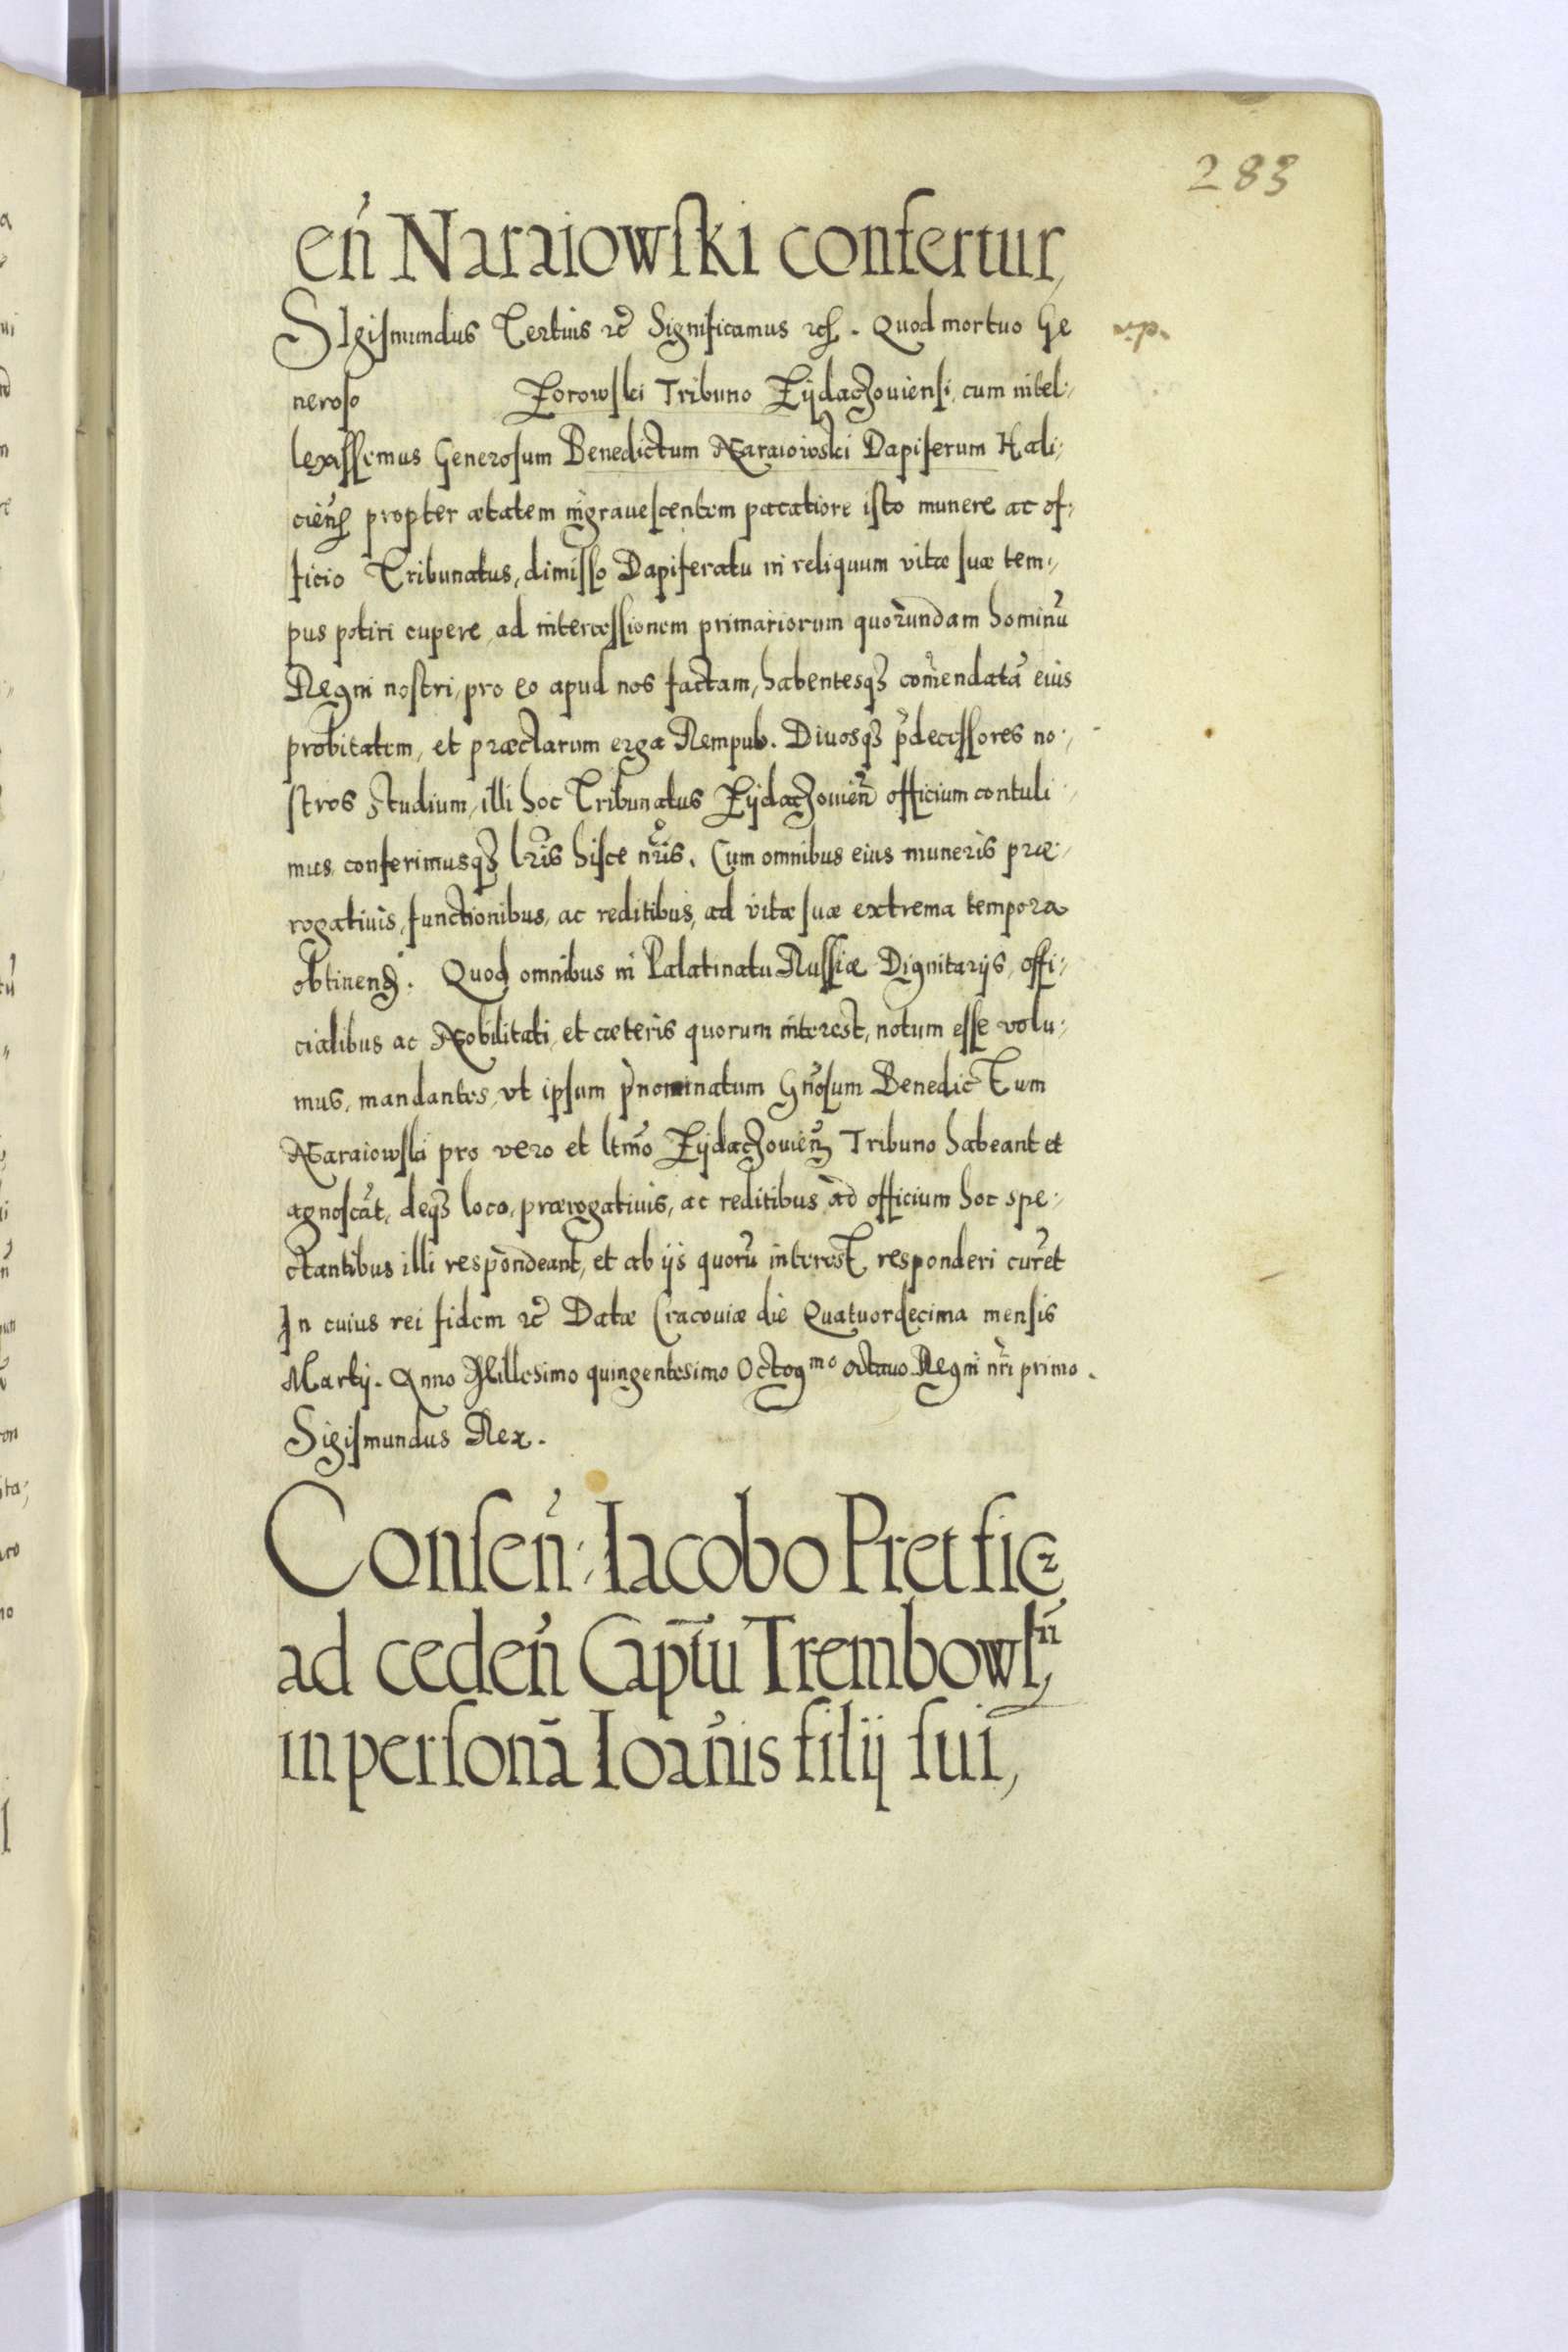 283
en̄ Naraiowſki confertur,
SIgiſmundus Tertius ꝛc̄ Significamus ꝛcꝭ. Quod mortuo Ge
neroſo Zorowſki Tribuno Zÿdaczouienſi, cum intel⸗
lexiſſemus Generoſum Benedictum Naraiowski Dapiferum Hali⸗
cien̄ꝭ propter ætatem ingraueſcentem pacatiore iſto munere ac of⸗
ficio Tribunatus, dimiſſo Dapiferatu in reliquum vitæ ſuæ tem⸗
pus potiri cupere, ad interceſſionem primariorum quorundam hominū
Regni noſtri, pro eo apud nos factam, habentesqꝫ com̄endatā eius
probitatem, et præclarum erga Rempub. Diuosqꝫ p̄deceſſores no⸗
ſtros ſtudium, illi hoc Tribunatus Zÿdaczouien̄ officium contuli⸗
mus, conferimusqꝫ lr̄is hiſce nr̄is. Cum omnibus eius muneris præ⸗
rogatiuis, functionibus, ac reditibus, ad vitæ ſuæ extrema tempora
obtinenꝭ. Quod omnibus in Palatinatu Ruſſiæ Dignitarÿs, offi⸗
cialibus ac Nobilitati, et cæteris quorum interest, notum eſſe volu⸗
mus, mandantes, vt ipſum p̄nominatum Gn̄oſum Benedictum
Naraiowſki pro vero et ltm̄o Zÿdaczouien̄ Tribuno habeant et
agnoſcāt, deqꝫ loco, prærogatiuis, ac reditibus ad officium hoc spe⸗
ctantibus illi respondeant, et ab ÿs quorū interest responderi curēt
In cuius rei fidem ꝛc̄ Datæ Cracouiæ die Quatuordecima mensis
Martÿ. Anno Millesimo quingentesimo Octogmo octauo Regni nr̄i primo.
Sigiſmundus Rex.
Conſen̄, Iacobo Pretfic
ad ceden̄ Captu̅ Trembowln̄,
in perſonā Ioan̄is filÿ ſui,